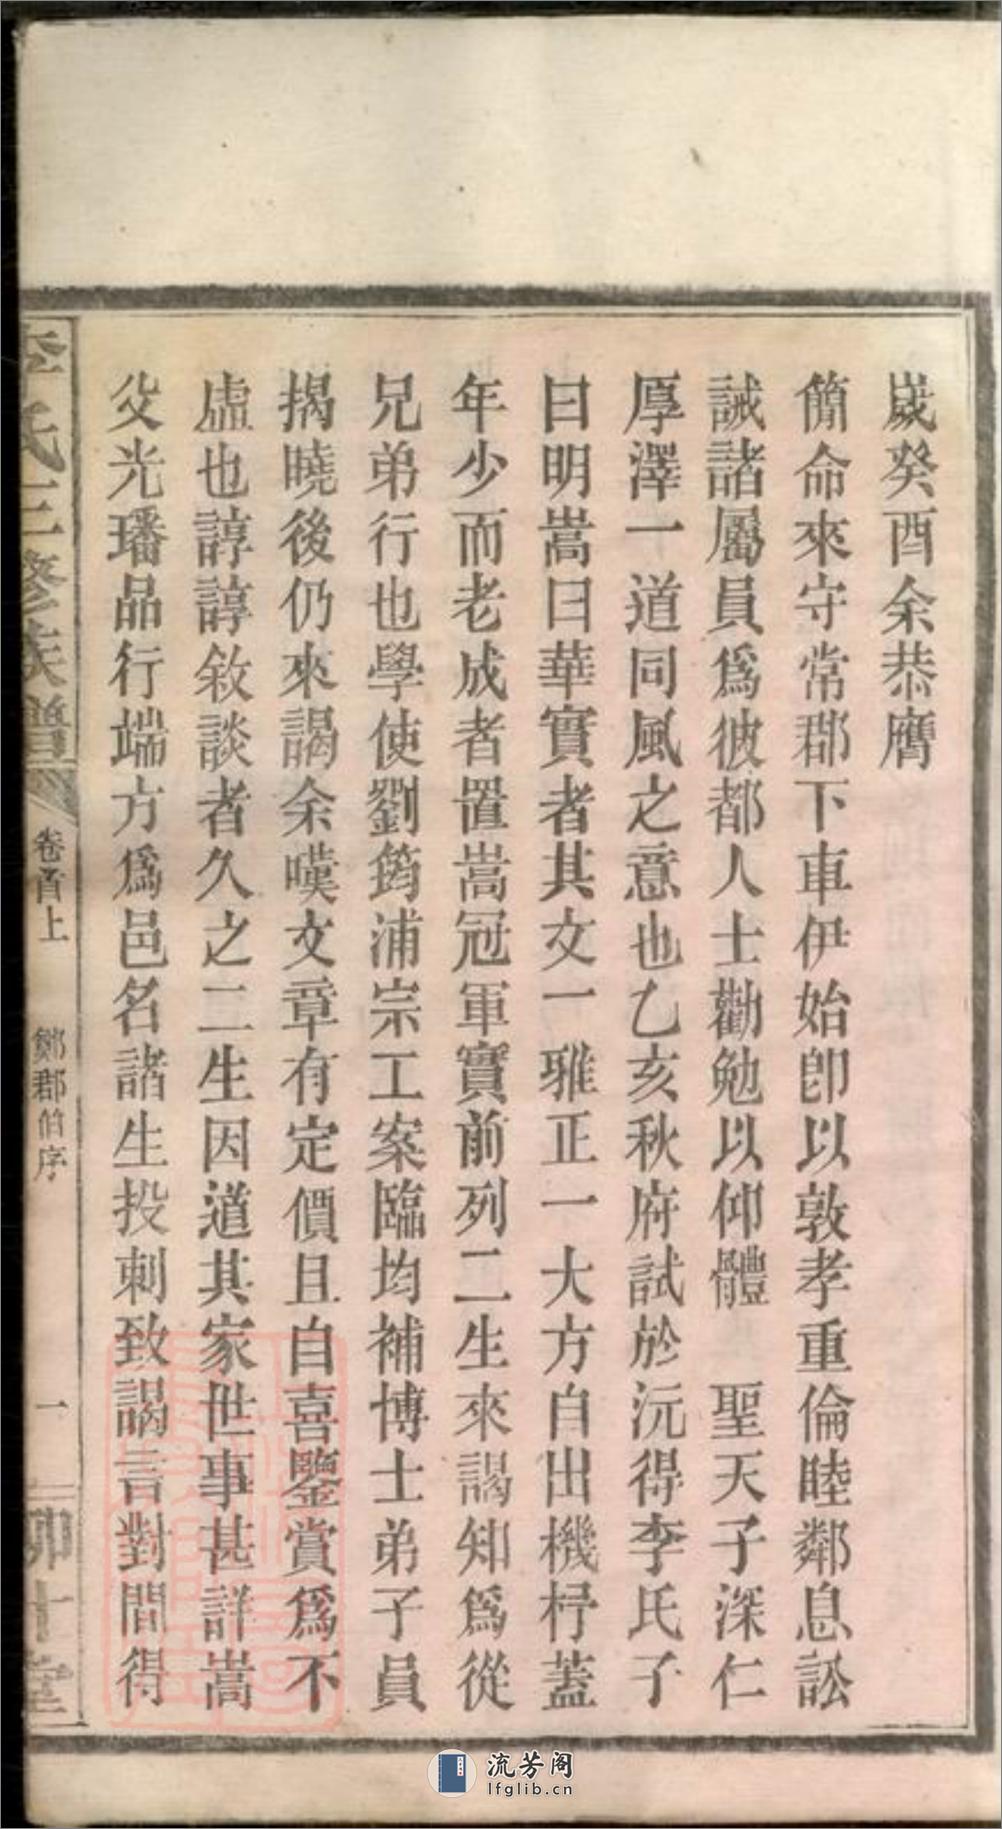 歲癸酉余恭膺
簡命來守常郡下車伊始卽以敦孝重倫睦鄰息訟
誡諸屬員爲彼都人士勸勉以仰體　聖天子深仁
厚澤一道同風之意也乙亥秋府試於沅得李氏子
曰明嵩曰華實者其文一雅正一大方自出機杼蓋
年少而老成者置嵩冠軍實前列二生來謁知爲從
兄弟行也學使劉筠浦宗工案臨均補博士弟子員
揭曉後仍來謁余嘆文章有定價且自喜鑒賞爲不
虛也諄諄敘談者久之二生因道其家世事甚詳嵩
父光璠品行端方爲邑名諸生投刺致謁言對間得
李氏三修族譜
卷首上
鄒郡伯序
一
卯十堂
流芳阁
lfglib.cn